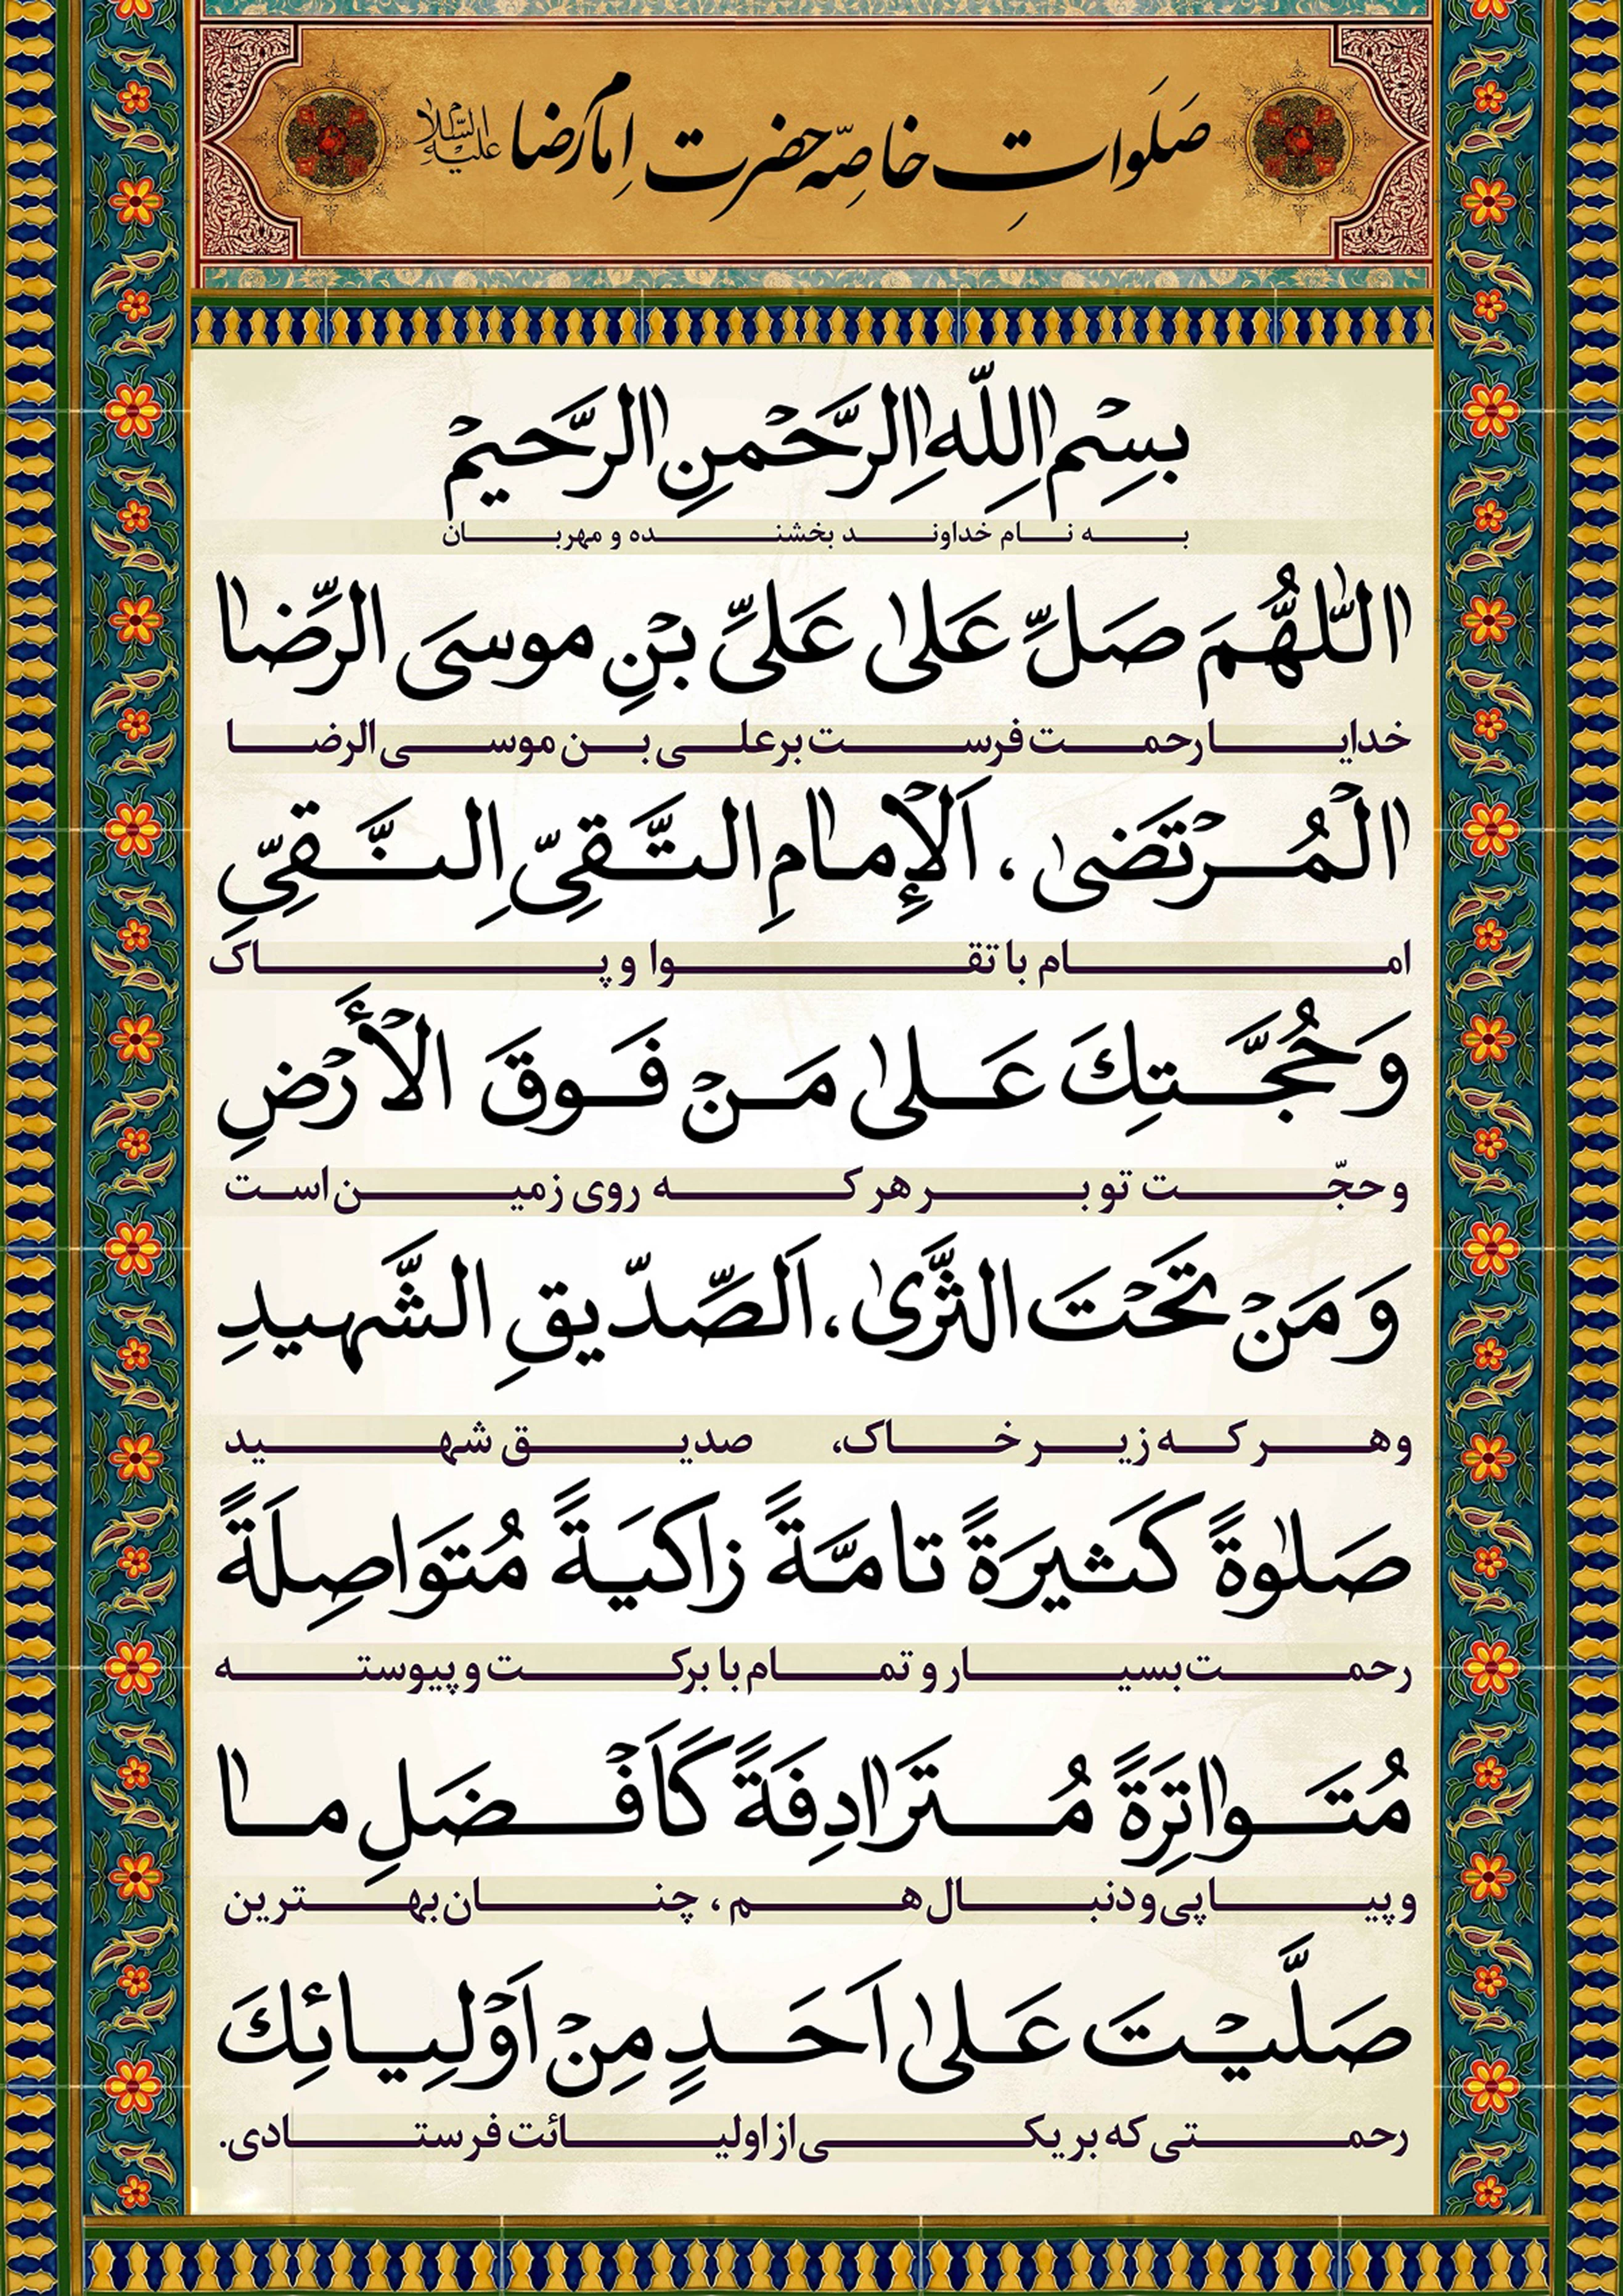 صَلَواتِ خاصّه حضرت اِمام رضا علیه السّلام
بِسْمِ اللّٰهِ الرَّحْمنِ الرَّحيمْ
به نام خداوند بخشنده و مهربان
اللّٰهُمَّ صَلِّ عَلىٰ عَلىِّ بْنِ موسَى الرِّضا
خدایا رحمت فرست بر علی بن موسی الرضا
الْمُرْتَضىٰ ، اَلْإِمامِ التَّقِىِّ النَّقِىِّ
امام با تقوا و پاک
وَ حُجَّتِكَ عَلىٰ مَنْ فَوقَ الْأَرْضِ
و حجّت تو بر هر که روی زمین است
وَ مَنْ تَحْتَ الثَّرىٰ، اَلصِّدّيقِ الشَّهيدِ
و هر که زیر خاک، صدیق شهید
صَلٰوةً كَثيرَةً تامَّةً زاكيَةً مُتَواصِلَةً
رحمت بسیار و تمام با برکت و پیوسته
مُتَواتِرَةً مُتَرادِفَةً كَاَفْضَلِ ما
و پیاپی و دنبال هم ، چنان بهترین
صَلَّيْتَ عَلىٰ اَحَدٍ مِنْ اَوْلِيائِكَ
رحمتی که بر یکی از اولیائت فرستادی.